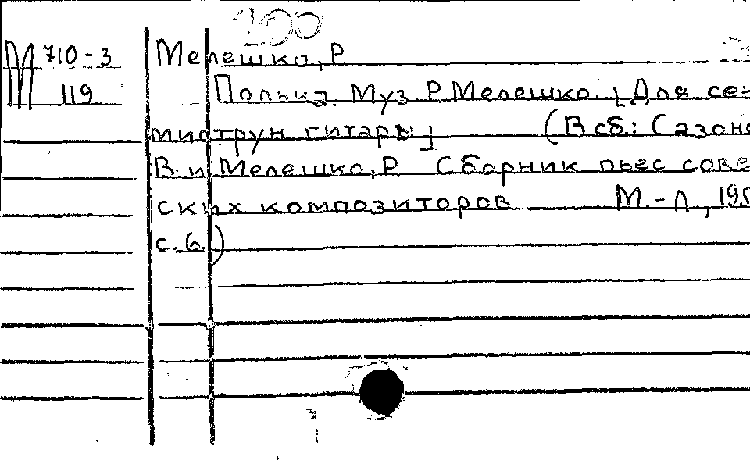 200
М 710-3 Мелешко, Р
119 Полька. Муз Р Мелешко. [Для се
миструн гитары] (В сб: Сазон
В. и Мелешко, Р Сборник пьес сове
ских композиторов М.-Л, 195
с. 6)